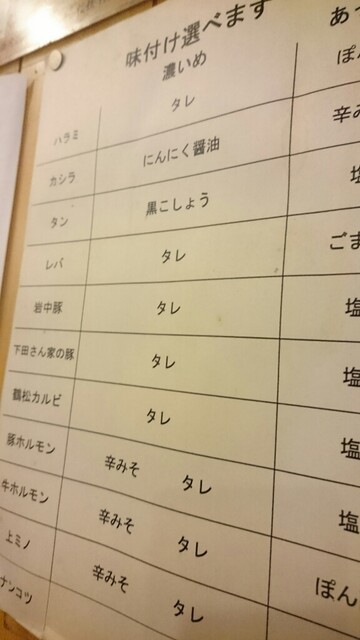 味付け選べます
濃いめ あっ
ハラミ タレ ぽん
カシラ にんにく醤油 辛み
タン 黒こしょう 塩
レバ タレ ごま
岩中豚 タレ 塩
下田さん家の豚 タレ 塩
鶴松カルビ タレ 塩
豚ホルモン 辛みそ タレ 塩
牛ホルモン 辛みそ タレ ぽん
上ミノ 辛みそ タレ
ナンコツ